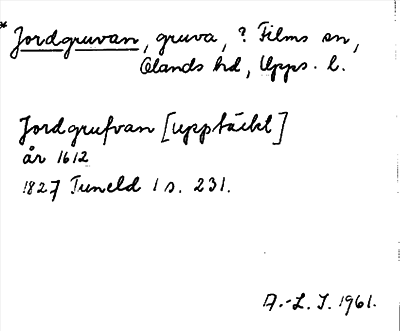 * Jordgruvan, gruva, ? Films sn,
Olands hd, Upps. l.
Jordgrufvan [upptäckt]
år 1612
1827 Tuneld 1 s. 231.
A.-L. J. 1961.